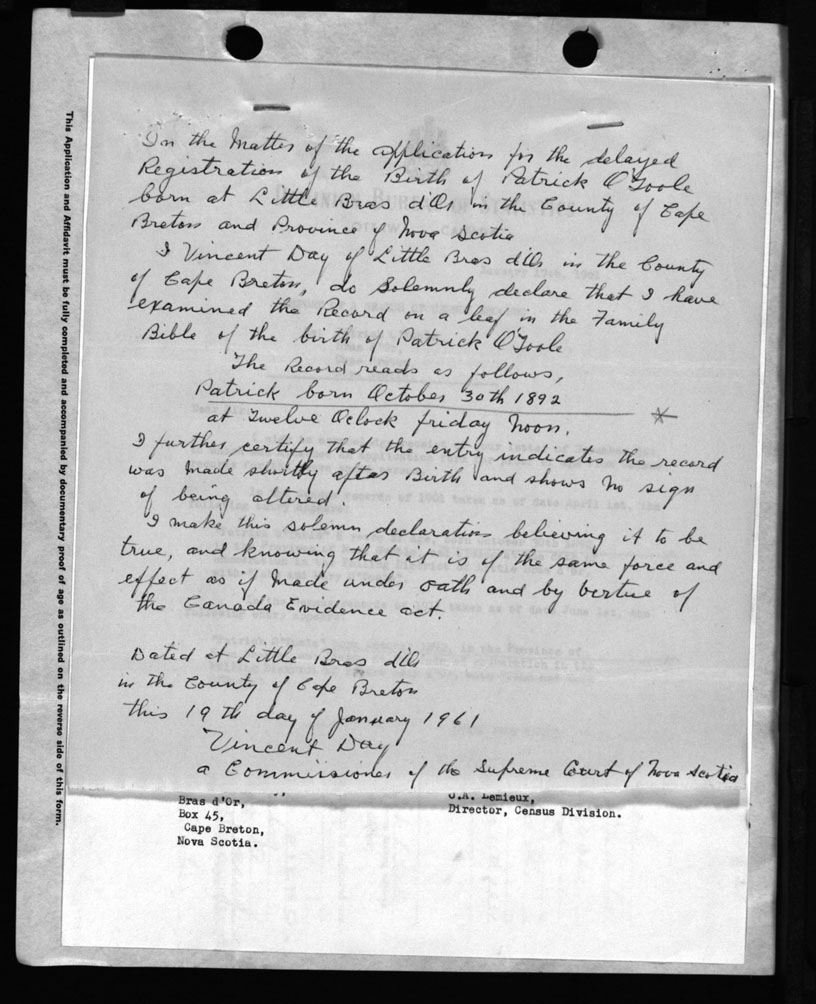 In the Matter of the application for the delayed
Registration of the Birth of Patrick O'Toole
born at Little Bras d'Or in the County of Cape
Breton and Province of Nova Scotia
I Vincent Day of Little Bras d'Or in the County
of Cape Breton, do Solemnly declare that I have
examined the Record on a leaf in the Family
Bible of the birth of Patrick O'Toole
The Record reads as follows,
Patrick born October 30th 1892
at Twelve Oclock friday Noon. *
I further certify that the entry indicates the record
was Made shortly after Birth and shows no sign
of being altered.
I make this solemn declaration believing it to be
true, and knowing that it is of the same force and
effect as if Made under oath and by virtue of
the Canada Evidence act.
Dated at Little Bras d'Or
in the County of Cape Breton
this 19th day of January 1961
Vincent Day
a Commissioner of the Supreme Court of Nova Scotia
Bras d'Or,
Box 45,
Cape Breton,
Nova Scotia.
J.A. Lemieux,
Director, Census Division.
This Application and Affidavit must be fully completed and accompanied by documentary proof of age as outlined on the reverse side of this form.